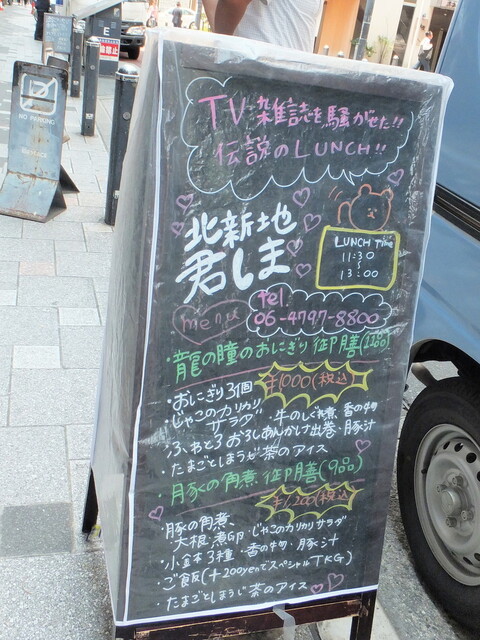 TV・雑誌を騒がせた!!
伝説のLUNCH!!
北新地
君しま
LUNCH Time
11:30
〜
13:00
menu
tel
06-4797-8800
・龍の瞳のおにぎり御膳(11品)
¥1000(税込)
・おにぎり3個
・じゃこのカリカリサラダ・牛のしぐれ煮・香の物
・ふぁとろおろしあんかけ出巻・豚汁
・たまごとほうじ茶のアイス
・豚の角煮御膳(9品)
¥1,200(税込)
・豚の角煮、
大根・煮卵・じゃこのカリカリサラダ
・小鉢3種・香の物・豚汁
・ご飯(+200yenでスペシャルTKG)
・たまごとほうじ茶のアイス
NO PARKING
E